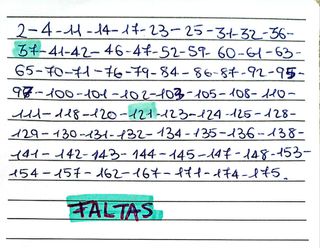 2-4-11-14-17-23-25-31-32-36-
37-41-42-46-47-52-59-60-61-63-
65-70-71-76-79-84-86-87-92-95-
98-100-101-102-103-105-108-110-
111-118-120-121-123-124-125-128-
129-130-131-132-134-135-136-138-
141-142-143-144-145-147-148-153-
154-157-162-167-171-174-175.
FALTAS